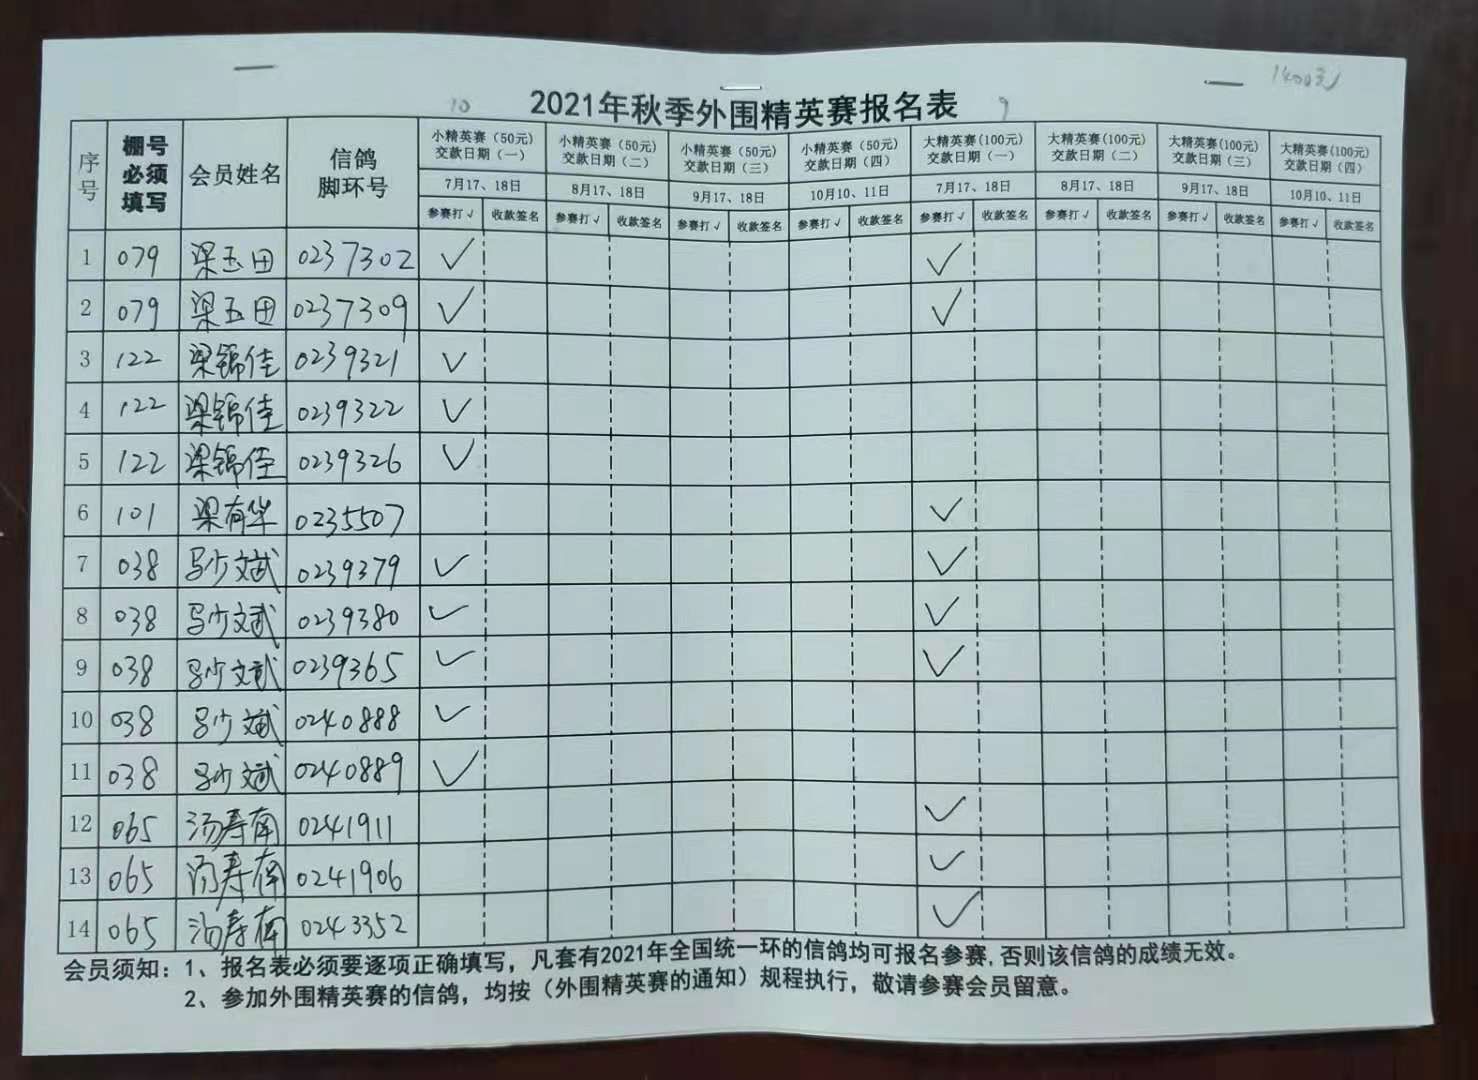 1400元
10
2021年秋季外围精英赛报名表
9
序号 棚号必须填写 会员姓名 信鸽脚环号 小精英赛（50元）交款日期（一） 小精英赛（50元）交款日期（二） 小精英赛（50元）交款日期（三） 小精英赛（50元）交款日期（四） 大精英赛(100元)交款日期（一） 大精英赛(100元)交款日期（二） 大精英赛(100元)交款日期（三） 大精英赛(100元)交款日期（四）
7月17、18日 8月17、18日 9月17、18日 10月10、11日 7月17、18日 8月17、18日 9月17、18日 10月10、11日
参赛打√ 收款签名 参赛打√ 收款签名 参赛打√ 收款签名 参赛打√ 收款签名 参赛打√ 收款签名 参赛打√ 收款签名 参赛打√ 收款签名 参赛打√ 收款签名
1 079 梁玉田 0237302 √ √
2 079 梁玉田 0237309 √ √
3 122 梁锦佳 0239321 √
4 122 梁锦佳 0239322 √
5 122 梁锦佳 0239326 √
6 101 梁有华 0235507 √
7 038 马少文斌 0239379 √ √
8 038 马少文斌 0239380 √ √
9 038 马少文斌 0239365 √ √
10 038 吕少斌 0240888 √
11 038 吕少斌 0240889 √
12 065 汤寿南 0241911 √
13 065 汤寿南 0241906 √
14 065 汤寿南 0243352 √
会员须知：1、报名表必须要逐项正确填写，凡套有2021年全国统一环的信鸽均可报名参赛,否则该信鸽的成绩无效。
2、参加外围精英赛的信鸽，均按（外围精英赛的通知）规程执行，敬请参赛会员留意。